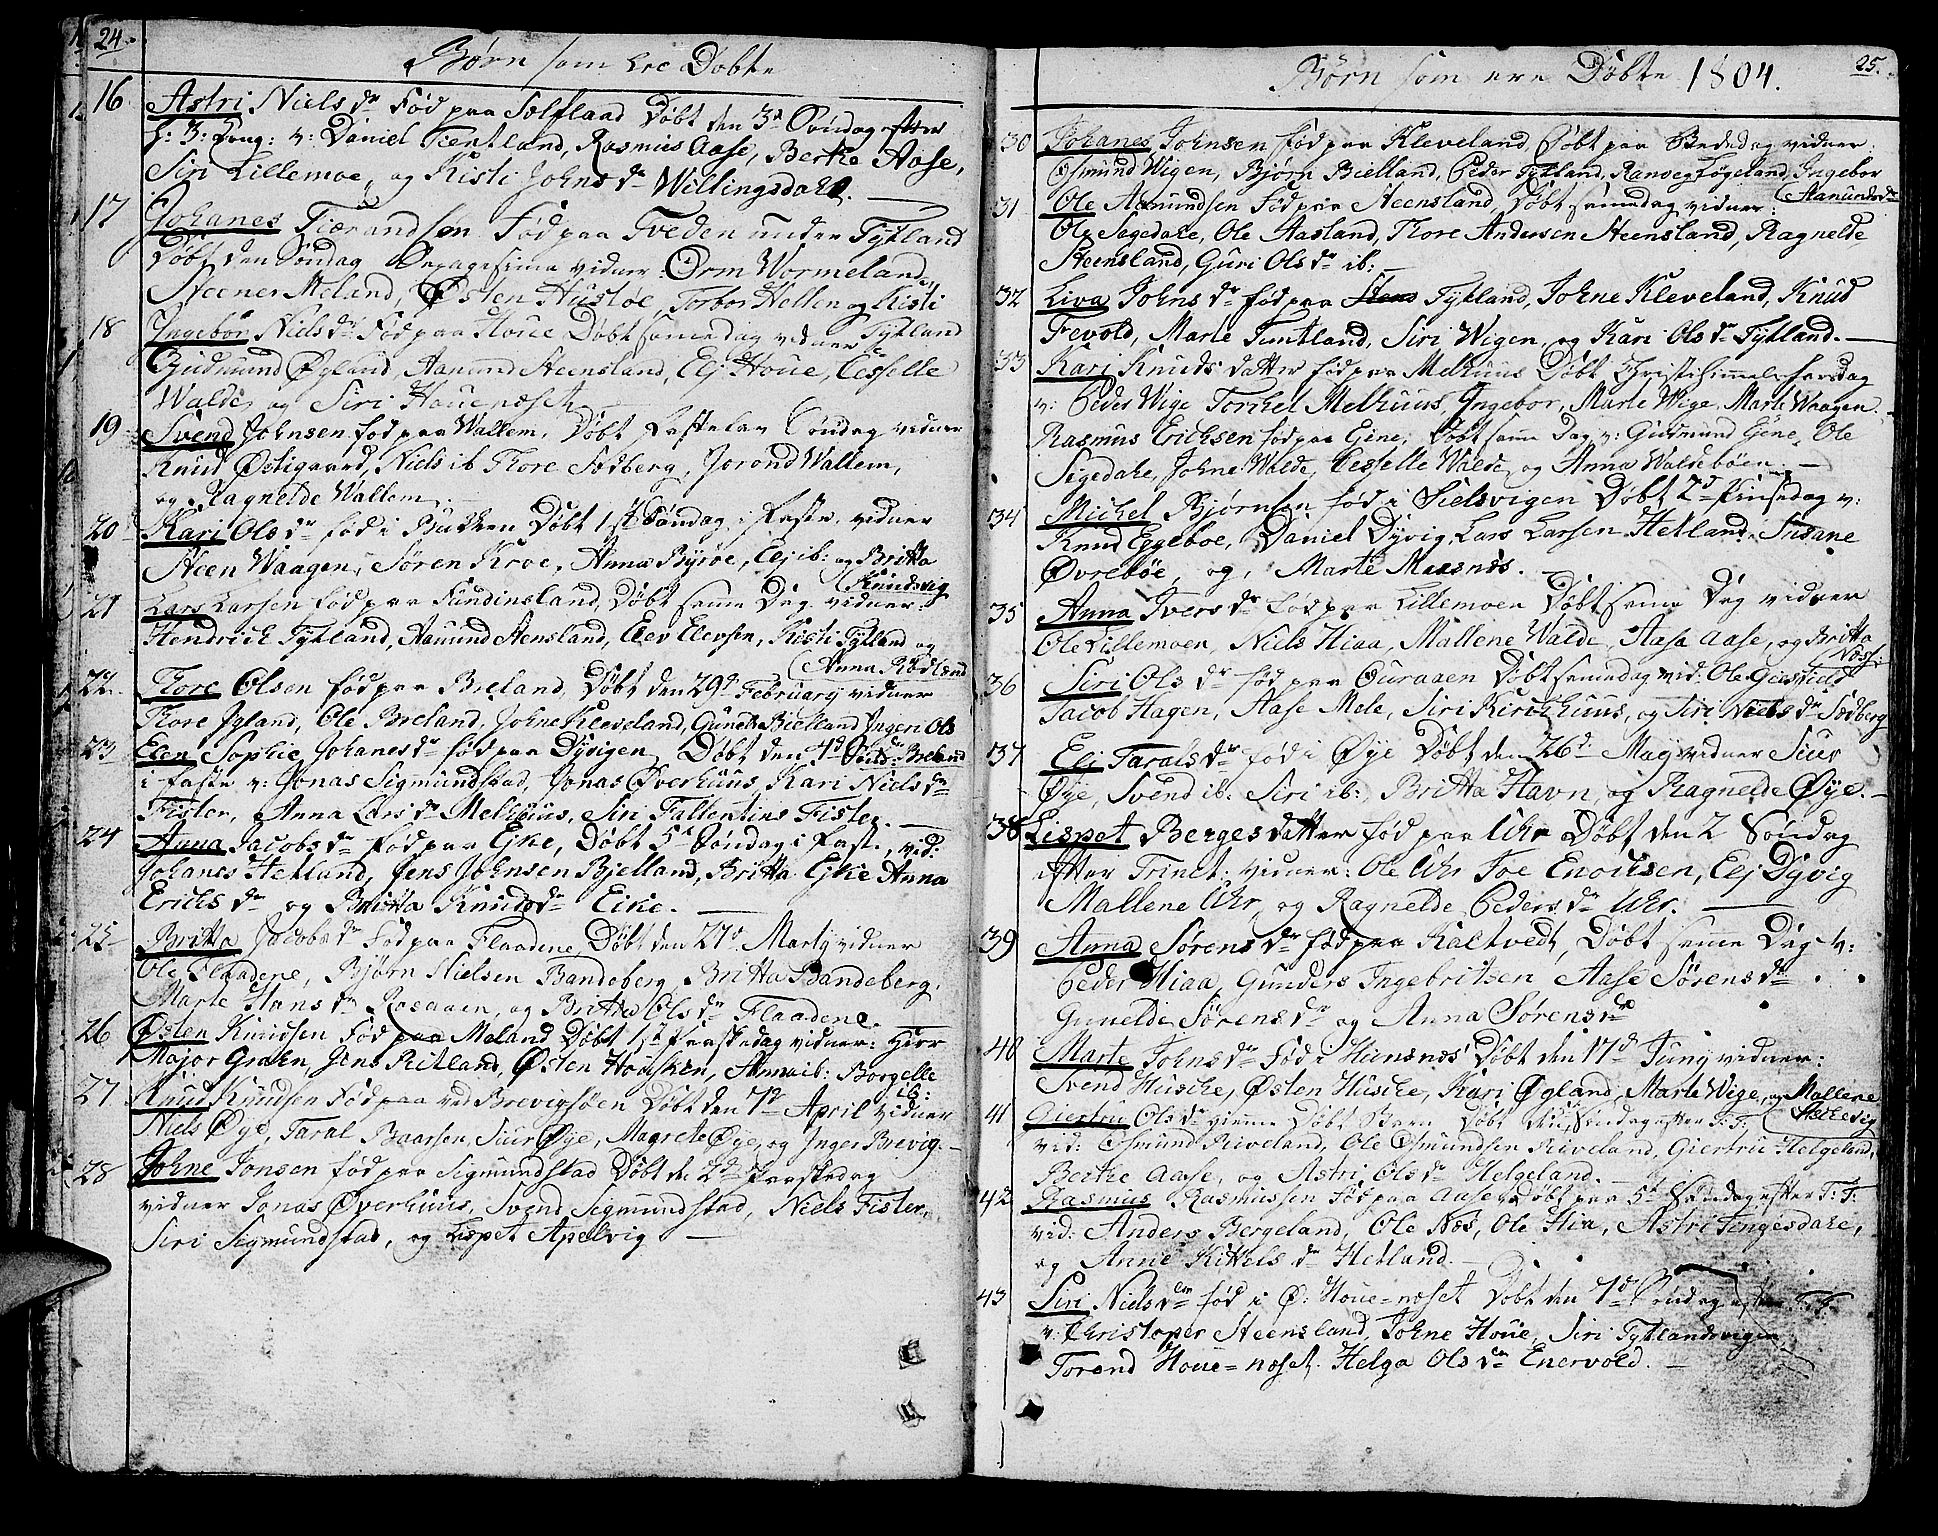 24.
Børn som ere Døbte
16. Astri Niels dr Fød paa Solfland Døbt den 3d Søndag efter
h: 3: Kong: v: Daniel Tentland, Rasmus Aase, Berthe Aase,
Siri Lillemoe, og Kisti Johns dr Willingsdahl.
17 Johanes Tiærandsen Fød paa Tveden under Tytland
Døbt den Søndag vidner: Orm Wormeland,
Steener Meland, Østen Hustøe, Torbor Hellen og Kisti
Tytland
18 Ingebor Niels dr Fød paa Houe Døbt samme dag vidner
Gudmund Øyland, Aanund Steensland, Elj Houe, Cesselle
Walde og Siri Houenæset
19 Svend Johnsen fød paa Wallem, Døbt Fastelav Søndag vidner
Knud Østigaard, Niels ib Thore Sædberg, Jorond Wallem,
og Ragnelde Wallem.
20 Kari Ols dr fød i Bakken Døbt 1st Søndag i Faste, vidner
Steen Waagen, Søren Kroe, Anna Byrøe, Elj ib: og Britta
Knudsvig
21 Lars Larsen fød paa Fundinsland, Døbt samme Dag vidner:
Hendrich Tytland, Aanund Stensland, Elev Elevsen, Kisti Tytland og
Anna Rødland
22. Thore Olsen fød paa Breland, Døbt den 29d February vidner
Thore Jyland, Ole Breland, Johne Kleveland, Gunelde Bielland Ingeri Ols
dr Breland
23 Elen Sophie Johanes dr fød paa Dysigen Døbt den 4d Sønd:
i faste v: Jonas Sigmundstad, Jonas Øverhuus, Kari Niels dr
Fister, Anna Lars dr Melhuus, Siri Fallentins Fister.
24 Anna Jacobs dr fød paa Eyke, Døbt 5t Søndag i Fast., vid:
Johanes Hetland, Jens Johnsen Bjelland, Britta Eyke Anna
Erichs dr og Britta Knuds dr Eike.
25 Britta Jacobs dr Fød paa Flaadene Døbt den 27d Marty vidner
Ole Flaadene, Bjørn Nielsen Bandeberg, Britta Bandeberg,
Marte Hans dr Rosaaen, og Britta Ols dr Flaadene.
26 Østen Knudsen Fød paa Meland Døbt 1st Paaskedag vidner: Herr
Major Green, Jens Reitland, Østen Housken, Anna ib: Borgelle
ib:
27 Knud Knudsen Fød paa ved Brevigsøen Døbt den 7d April vidner
Niels Øye, Taral Baarsen, Siur Øye, Magrete Øye, og Inger Brevig.
28 Johne Jonsen fød paa Sigmundstad Døbt de 2d Paaskedag
vidner Jonas Øverhuus, Svend Sigmundstad, Niels Fister,
Siri Sigmundstad, og Lispet Apelvig
25.
Børn som ere Døbte 1804.
30 Johanes Johnsen fød paa Kleveland, Døbt paa Bededag vidner:
Osmund Wigen, Bjørn Bielland, Peder Tytland, Ranveg Føgeland, Ingebor
Aanunds dr
31 Ole Aamundsen Fød paa Steensland, Døbt samme dag vidner:
Ole Sagedahl, Ole Aasland, Thore Andersen Steensland, Ragnelde
Steensland, Guri Ols dr ib:
32 Liva Johns dr fød paa Tytland, Johne Kleveland, Knud
Fevold, Marte Tuntland, Siri Wigen, og Kari Ols dr Tytland.
33 Kari Knuds datter fød paa Melhuus Døbt Christi himmelfartsdag
v: Peder Wige Torchel Melhuus, Ingebor, Marte Wige, Marte Waagen
Rasmus Ericksen fød paa Eine, Døbt samme Dag v: Gudmund Eine, Ole
Sigedahl, Johne Walde, Cesselle Walde og Anna Waldebøen.
34 Michel Bjørnsen fød i Sielsvigen Døbt 2d Pinsedag v:
Knud Eggeboe, Daniel Dyvig, Lars Larsen Hetland, Susane
Øvrebøe, og, Marte Maasnæs.
35 Anna Ivers dr fød paa Lillemoen Døbt samme Dag vidner
Ole Lillemoen, Niels Hiaa, Mallene Walde, Aase Aase, og Britta
Næss:
36 Siri Ols dr fød paa Ouraaen Døbt samme dag vid: Ole
Jacob Hagen, Aase Mele, Siri Kirckhuus, og Siri Niels dr Sædberg
37 Elj Tarals dr fød i Øye Døbt den 26d May vidner Siur
Øye, Svend ib: Siri ib:, Britta Havn, og Ragnelde Øye.
38 Lispet Berges datter fød paa Uhr Døbt den 2 Søndag
efter Trinet: vidner: Ole Uhr Toe Enochsen, Elj Dyvig
Mallene Uhr, og Ragnelde Peders dr Uhr.
39 Anna Sørens dr fød paa Kaltvedt, Døbt samme Dag v:
Peder Hiaa, Gunders Ingebritsen Aase Sørens dr
Gunelde Sørens dr og Anna Sørens dr
40 Marte Johns dr Fød i Hunsnæs Døbt den 17d Juny vidner:
Svend Huscke, Østen Huscke, Kari Øyland, Marte Wige, og Mallene
41 Giertru Ols dr Døbt Søndag efter T: T:
vid: Osmund Riveland, Ole Osmundsen Riveland, Giertru Helgeland,
Berthe Aase, og Astri Ols dr Helgeland.
42 Rasmus Rasmussen Fød paa Aase Døbt paa 5t Søndag efter T: T:
vid: Anders Bergeland, Ole Næs, Ole Hia, Astri Tengesdahl,
og Anne Kittels dr Hetland.
43 Siri Niels dr fød i Ø: Houe=næset Døbt den 7d Søndag efter T: T:
v: Christoper Steensland, Johne Houe, Siri Tytlandsvigen
Torend Houe=næset. Helga Ols dr Enervold.